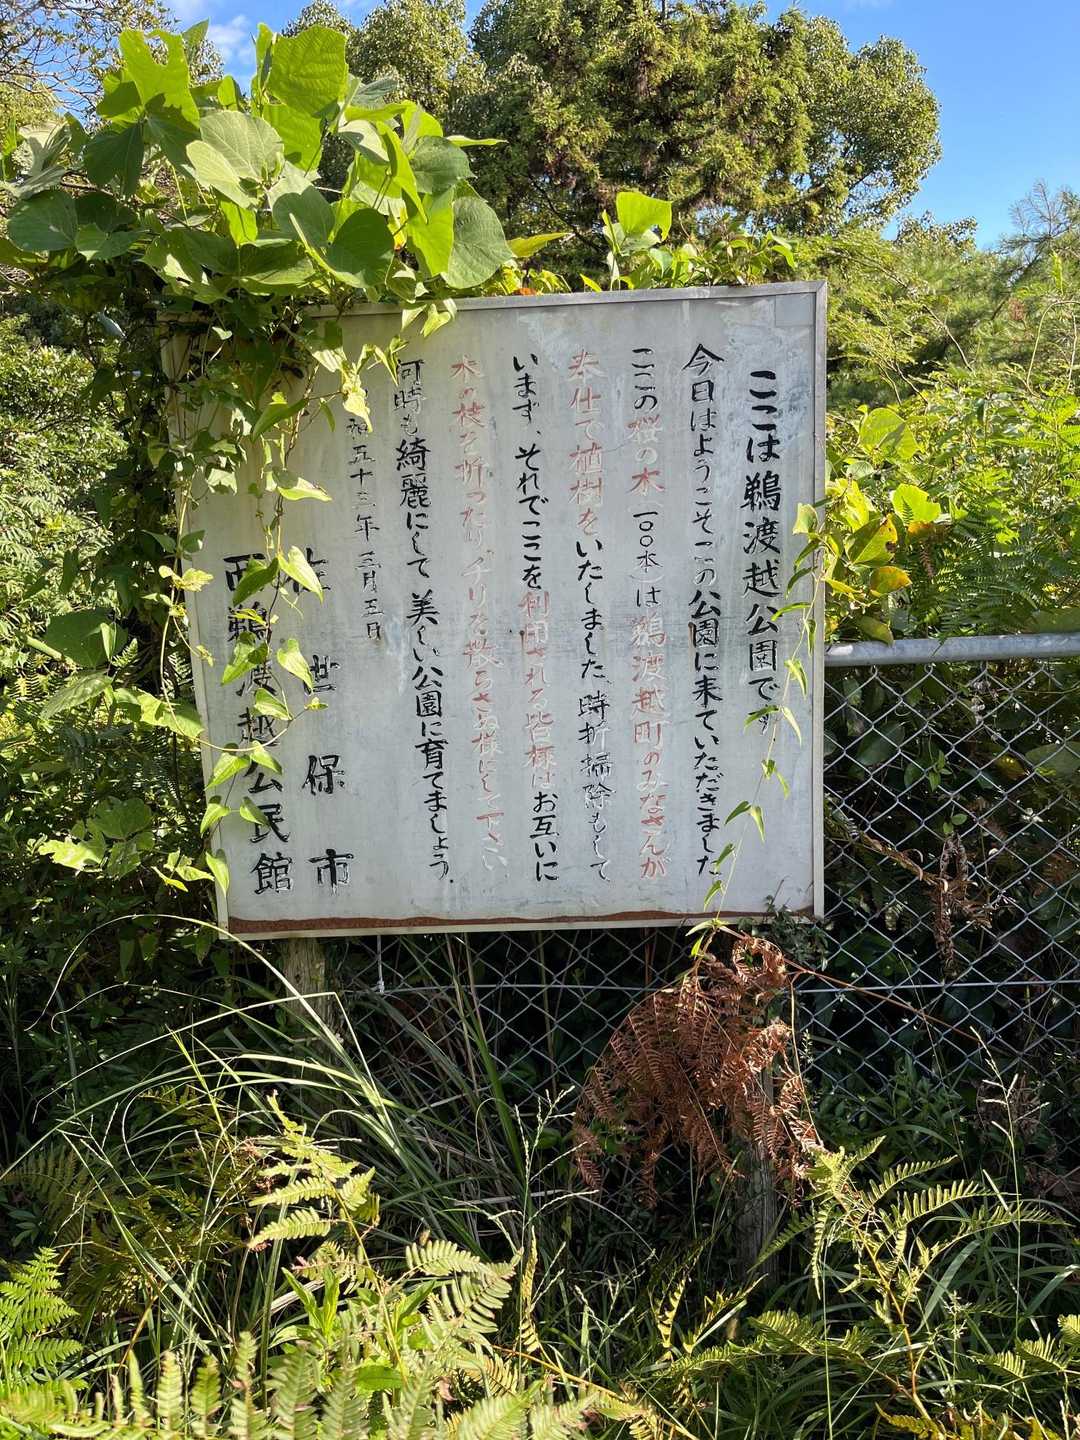 ここは鵜渡越公園です
今日はようこそこの公園に来ていただきました
ここの桜の木(一〇〇本)は鵜渡越町のみなさんが
奉仕で植樹をいたしました、時折掃除もして
います、それでここを利用される皆様はお互いに
木の枝を折ったりゴミを散らさぬ様にして下さい
何時も綺麗にして美しい公園に育てましょう。
和五十三年三月五日
佐世保市
西鵜渡越公民館